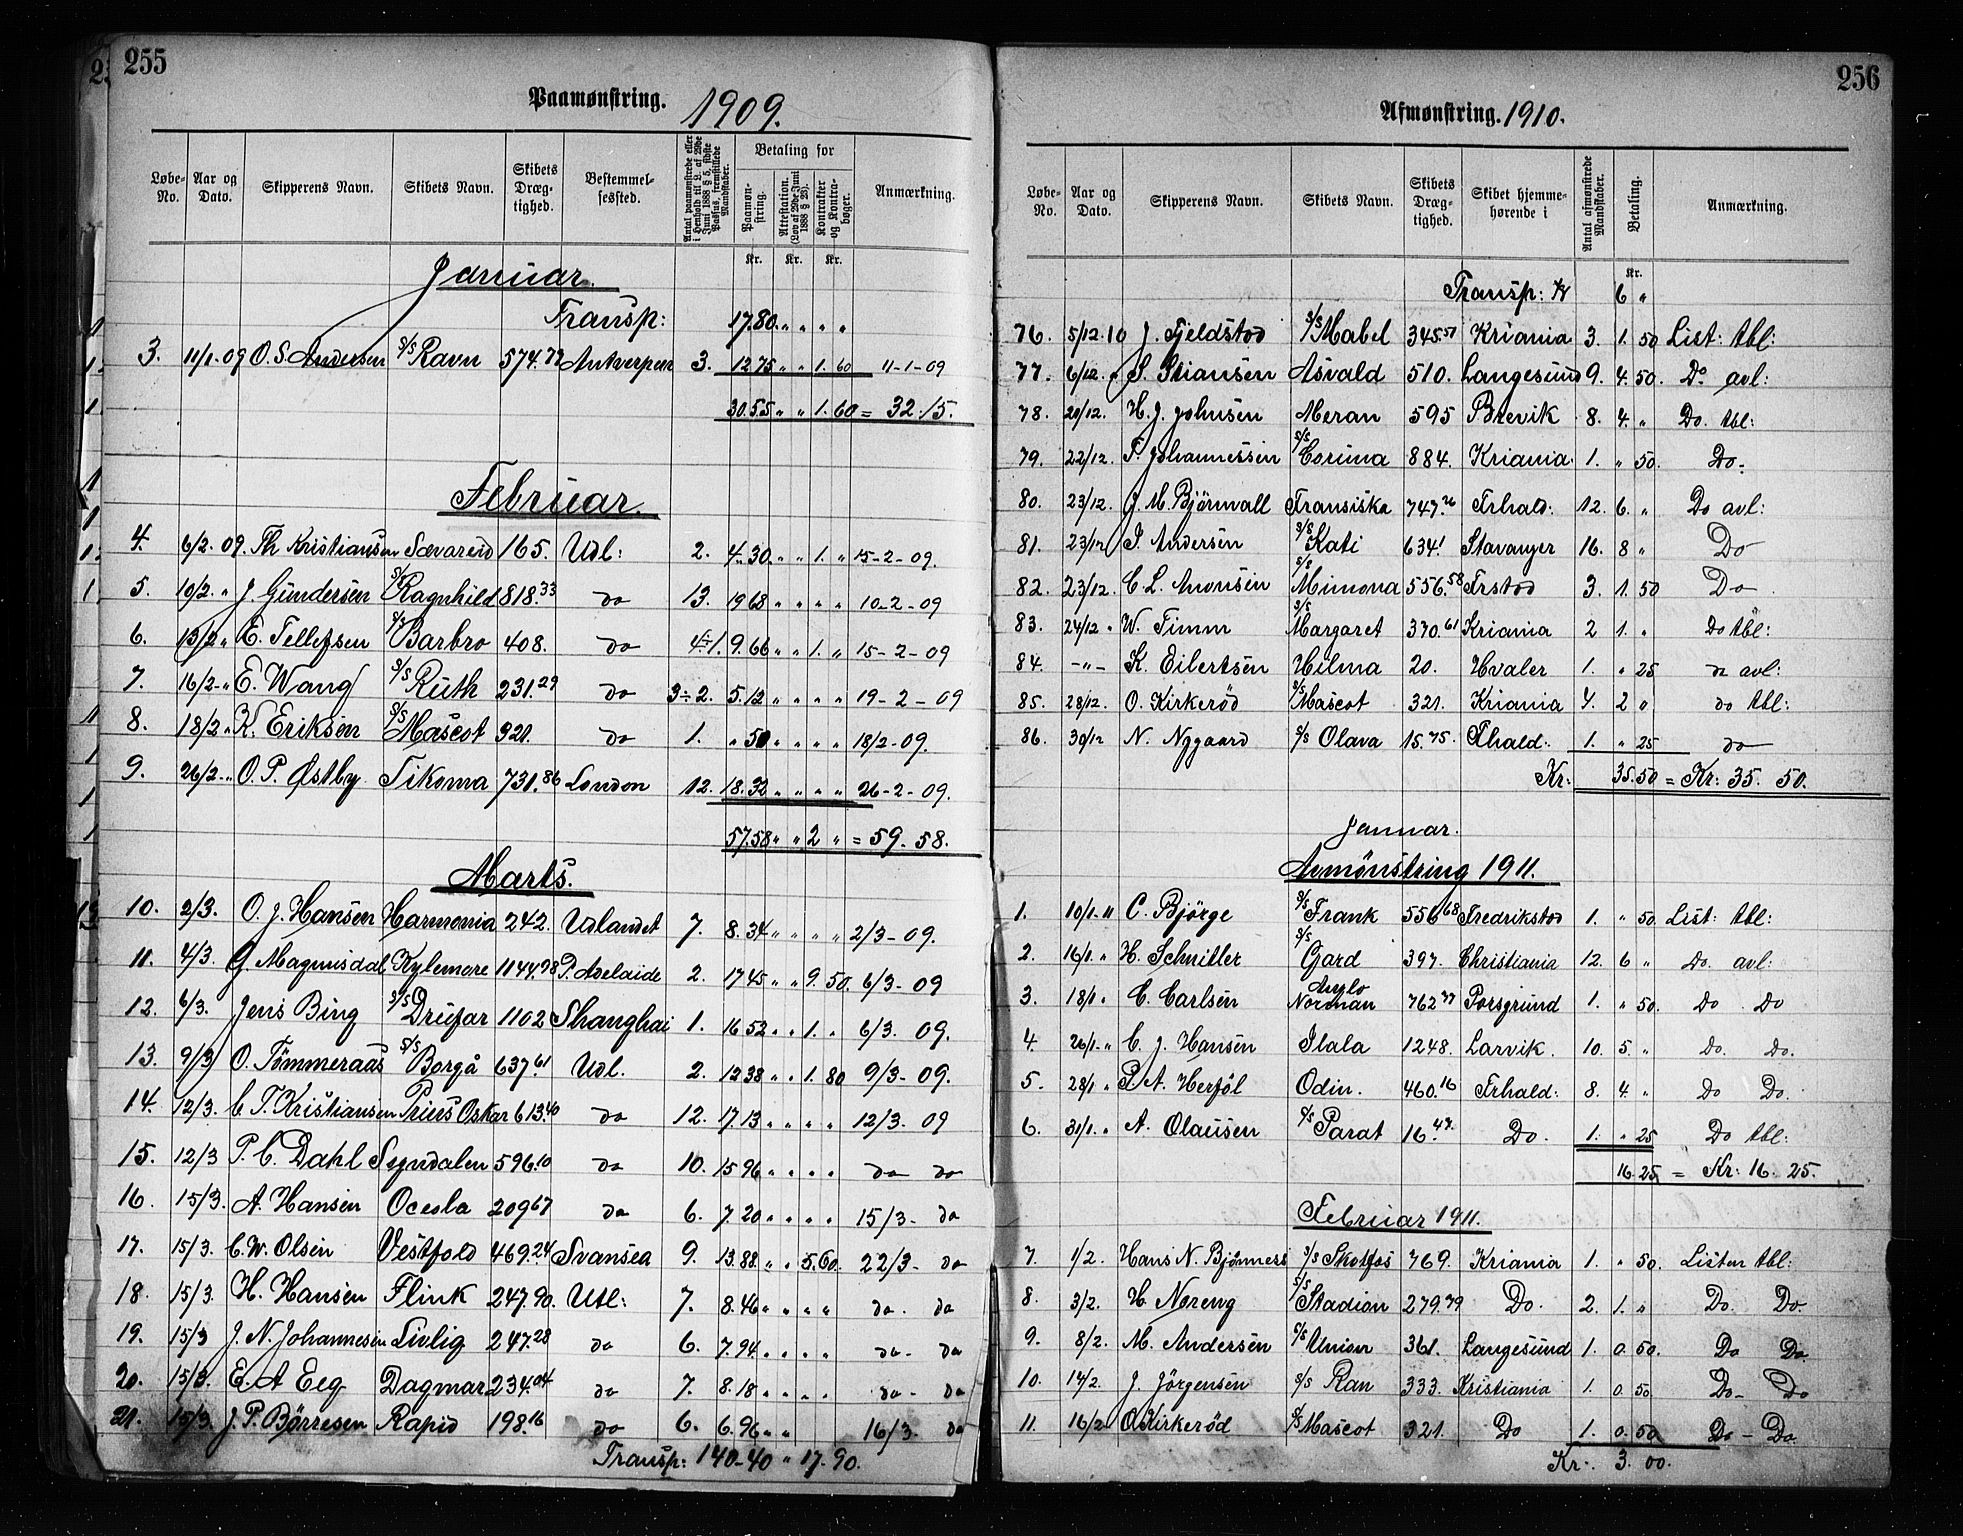 255
Paamønstring. 1909.
Løbe-No. Aar og Dato. Skipperens Navn. Skibets Navn. Skibets Dræg-tighed. Bestemmel-sessted. Antal paamønstrede eller i Henhold til L. af 29de Juni 1888 § 5, sidste Passus, fremstillede Mandskaber. Betaling for Paamøn-string. Attestation. (Lov af 29de Juni 1888 § 28). Kontrakter og Kontra-bøger. Anmærkning.
Kr. Kr. Kr.
Januar.
Transp: 17.80 " " " "
3. 11/1-09 O. S. Andersen S/S Ravn 574.72 Antverpen 3. 12 75 " " 1. 60 11-1-09
30.55 " " 1.60 = 32.15.
Februar.
4. 6/2. 09. Th Kristiansen Sævareid 165. Udl: 2. 4.30 " " 1. " 15-2-09.
5. 10/2. " J. Gundersen S/S Ragnhild 818.33 do 13. 19 68 " " " " 10-2-09
6. 13/2 " E. Tellefsen S/S Barbro 408. do 4÷1. 9.66 " " 1. " 15-2-09
7. 16/2-" E. Wang S/S Ruth 231.29 do 3÷2. 5.12 " " " " 19-2-09
8. 18/2 " K. Eriksen S/S Mascot 321. do 1. " 50 " " " " 18/2-09.
9. 26/2-" O. P. Østby Tikoma 731.86 London 12. 18.32 " " " " 26-2-09.
57.58 " " 2 " = 59.58.
Marts.
10. 2/3. O. J. Hansen Harmonia 242. Udlandet 7. 8.34 " " " " 2/3-09.
11. 4/3. G. Magnusdal Kylemore 1144.98 P. Adelaide 2. 17 45 " " 9. 50. 6/3-09
12. 6/3. Jens Bing S/S Drufar 1102 Shanghai 1. 16 52 " " 1. " 6/3. 09.
13. 9/3 O. Tømmeraas S/S Borgå 637.61 Udl. 2. 12 38 " " 1. 80 9/3-09.
14. 12/3. C T. Kristiansen Prins Oskar 613.40 do 12. 17.13 " " " " 12/3. 09
15. 12/3 P. C. Dahl Syndalen 596.10 do 10. 15 96 " " " " do do
16. 15/3. A. Hansen Oceola 209 67 do 6. 7. 20 " " " " 15/3- do
17. 15/3. C. W. Olsen Vestfold 469.24 Svansea 9. 13.88. " " 5.60. 22/3- do
18. 15/3. H. Hansen Flink 247.90. Utl: 7. 8.46 " " " " do. do
19. 15/3 J. N. Johannesen Livlig 247.28 do 6. 7.94. " " " " do- do
20. 15/3. E. A Eeg Dagmar 234.04 do 7. 8.18 " " " " do- do
21. 15/3. J. P. Børresen Rapid 198.16 do 6. 6.96 " " 16/3. do
Transp: 140-40 " 17.90.
256
Afmønstring. 1910.
Løbe-No. Aar og Dato. Skipperens Navn. Skibets Navn. Skibets Dræg-tighed. Skibet hjemme-hørende i Antal afmønstrede Mandskaber. Betaling. Anmærkning.
Kr.
Transp: Kr 6 "
76. 5/12.10 J. Fjeldstod S/S Mabel 345.51 Kriania 3. 1. 50 List: tbl:
77. 6/12. " S. Stiansen Asvald 510. Langesund 9. 4. 50. Do avl:
78. 20/12. H. J. Johnsen Meran 595 Brevik 8. 4. " Do. tbl:
79. 22/12. F. Johannessen S/S Corona 884. Kriania. 1. " 50. Do.
80. 23/12. J. M. Bjørnvall Fransiska 747.26 Frhald: 12. 6. " Do avl:
81. 23/12 J. Andersen S/S Kati 634.1 Stavanger 16. 8 " Do
82. 23/12. C L. Aronsen S/S Mimona 556.58 Frstad 3. 1. 50 Do
83. 24/12 " W. Timm S/S Margaret 370.61 Kriania 2 1. " Do tbl:
84. -"- K. Eilertsen Hilma 20. Hvaler 1. " 25 do avl:
85. 28/12. O. Kirkerød S/S Mascot 321. Kriania 4. 2 " do tbl:
86. 30/12 N. Nygaard S/S Olava 15.75. Frhald: 1. " 25 do
Kr: 35.50 = Kr: 35. 50.
Januar.
Avmönstring 1911.
1. 10/1. 11 C. Bjørge S/S Frank 556 68 Fredrikstad 1. " 50. List: tbl:
2. 16/1. " H. Schnitler S/S Gard 397. Christiania 12. 6 " Do. avl:
3. 18/1 " C. Carlsen Anglo Norman 762 77 Porsgrund 1. " 50. Do Do
4. 26/1. " C. J. Hansen Ilala 1248. Larvik. 10. 5. " Do. Do.
5. 28/1 " P. A. Herföl Odin. 460.16 Frhald: 8. 4. " Do Do.
6. 31/1. " A. Olausen S/S Parat 16.47. Do. 1. " 25 Do tbl:
16.25 = Kr: 16. 25.
Februar 1911.
7. 1/2. Hans N. Bjønness S/S Skotfos 769. Kriania 1. " 50. Listen tbl:
8. 3/2. H. Noreng S/S Stadion 279.79 Do. 2. 1. " Do. Do.
9. 8/2. M. Andersen S/S Union 361. Langesund 1. 0. 50. Do Do.
10. 14/2. J. Jörgensen S/S Ran 333. Kristiania 1. 0. 50 Do- Do
11. 16/2 O. Kirkerød S/S Mascot 321. Do 1. 0. 50 Do - Do.
Kr. 3. 00.